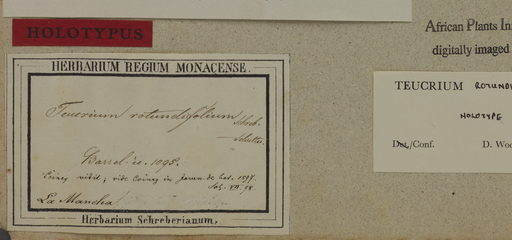 HOLOTYPUS
HERBARIUM REGIUM MONACENSE.
Teucrium rotundifolium Schreb.
Barrel. ic. 1098.
Coincy vidit; vide Coincy in Journ. de bot. 1897.
La Mancha
Herbarium Schreberianum.
African Plants In
digitally imaged
TEUCRIUM ROTUNDI
HOLOTYPE
Det./Conf. D. Woo